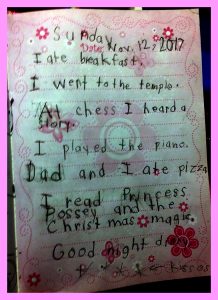 Sunday
Date: Nov. 12, 2017
I ate breakfast.
I went to the temple.
At chess I heard a
story.
I played the piano.
Dad and I ate pizza
I read Princess
Possey and the
Christmas magic.
Good night diary
kisses